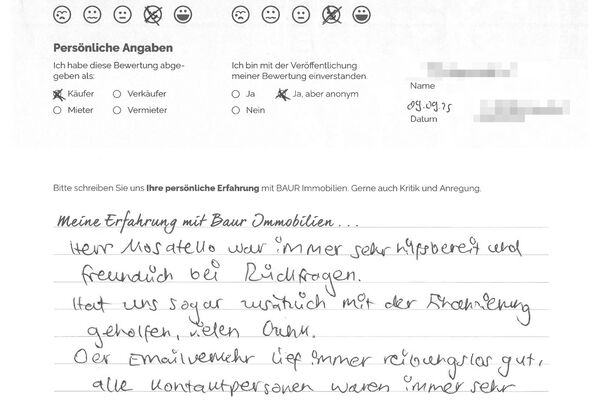 Persönliche Angaben
Ich habe diese Bewertung abge-
geben als:
Käufer
Verkäufer
Mieter
Vermieter
Ich bin mit der Veröffentlichung
meiner Bewertung einverstanden.
Ja
Ja, aber anonym
Nein
Name
09.09.25
Datum
Bitte schreiben Sie uns Ihre persönliche Erfahrung mit BAUR Immobilien. Gerne auch Kritik und Anregung.
Meine Erfahrung mit Baur Immobilien...
Herr Mosatello war immer sehr hilfsbereit und
freundlich bei Rückfragen.
Hat uns sogar zusätzlich mit der Finanzierung
geholfen, vielen Dank.
Der Emailverkehr lief immer reibungslos gut,
alle Kontaktpersonen waren immer sehr